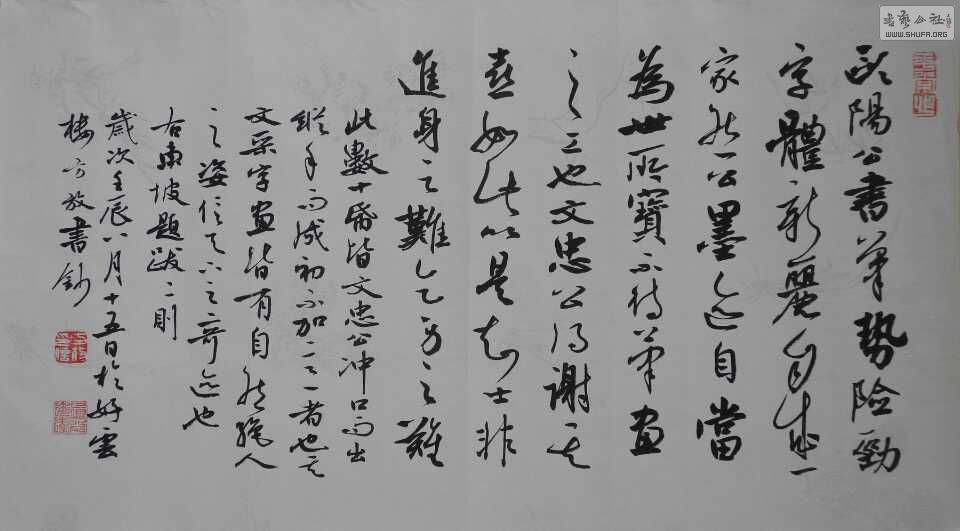 歐陽公書筆勢險勁
字體新麗自成一
家然公墨迹自當
為世所寶不待筆畫
之工也文忠公得謝其
喜如此以是知士非
進身之難乃乞身之難
此數十紙皆文忠公冲口而出
縱手而成初不加意者也其
文采字畫皆有自然絕人
之姿信天下之奇迹也
右東坡題跋二則
歲次壬辰八月十五日於好雲
樓方放書鈔
WWW.SHUFA.ORG